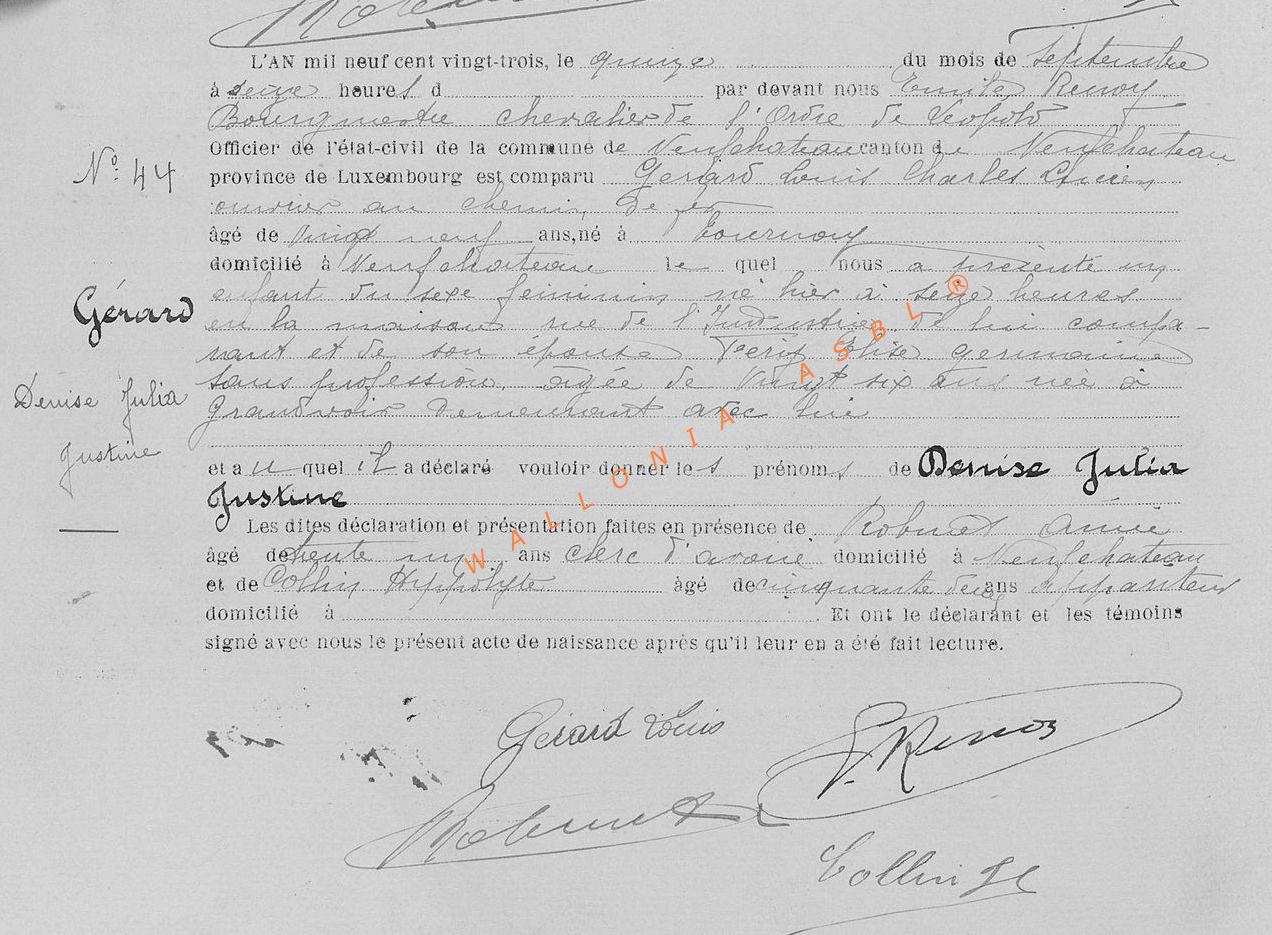 L'AN mil neuf cent vingt-trois, le quinze du mois de septembre
à seize heures d par devant nous Emile Renoy
Bourgmestre chevalier de l'Ordre de Léopold
Officier de l'état-civil de la commune de Neufchateau canton de Neufchateau
N°. 44
province de Luxembourg est comparu Gérard Louis Charles Lucien
ouvrier au chemin de fer
âgé de vingt neuf ans, né à Tournay
domicilié à Neufchateau le quel nous a présenté un
enfant du sexe féminin né hier à seize heures
Gérard
en la maison rue de l'Industrie de lui compa-
rant et de son épouse Elise Germaine
sans profession, agée de vingt six ans née à
Denise Julia
Grandvoir demeurant avec lui
Justine
et au quel il a déclaré vouloir donner les prénoms de Denise Julia
Justine
Les dites déclaration et présentation faites en présence de Aimé
âgé de trente un ans clerc d'avoué domicilié à Neufchateau
et de Collin Hippolyte âgé de cinquante deux ans appariteur
domicilié à Et ont le déclarant et les témoins
signé avec nous le présent acte de naissance après qu'il leur en a été fait lecture.
WALLONIA ASBL ®
Gérard Louis
E. Renoy
Collin H